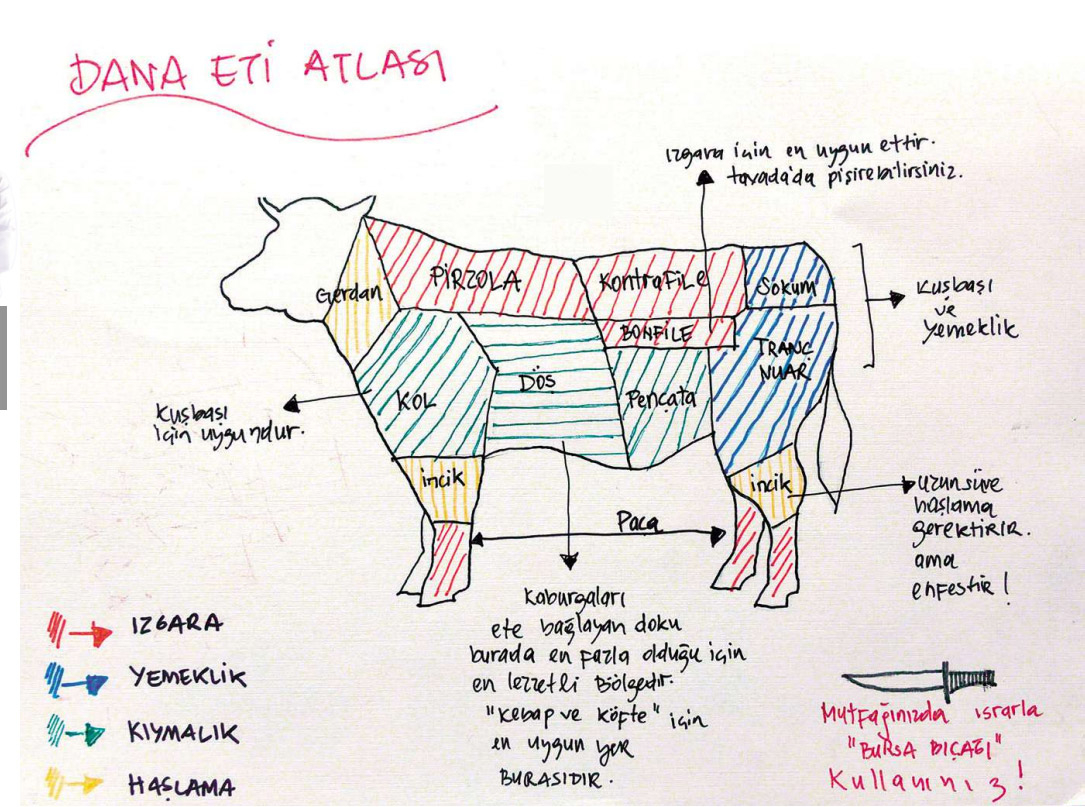 DANA ETİ ATLASI
Izgara için en uygun ettir.
tavada'da pişirebilirsiniz.
Gerdan
PİRZOLA
KontraFİLE
Sokum
BONFİLE
TRANÇ
NUAR
KOL
DÖŞ
Pençata
Kuşbaşı
ve
yemeklik
Kuşbaşı
için uygundur.
incik
incik
Paça
uzun süre
haşlama
gerektirir.
ama
enfestir!
Kaburgaları
ete bağlayan doku
burada en fazla olduğu için
en lezzetli Bölgedir.
"Kebap ve köfte" için
en uygun yer
BURASIDIR.
IZGARA
YEMEKLİK
KIYMALIK
HAŞLAMA
Mutfağınızda ısrarla
"BURSA BIÇAĞI"
Kullanınız!